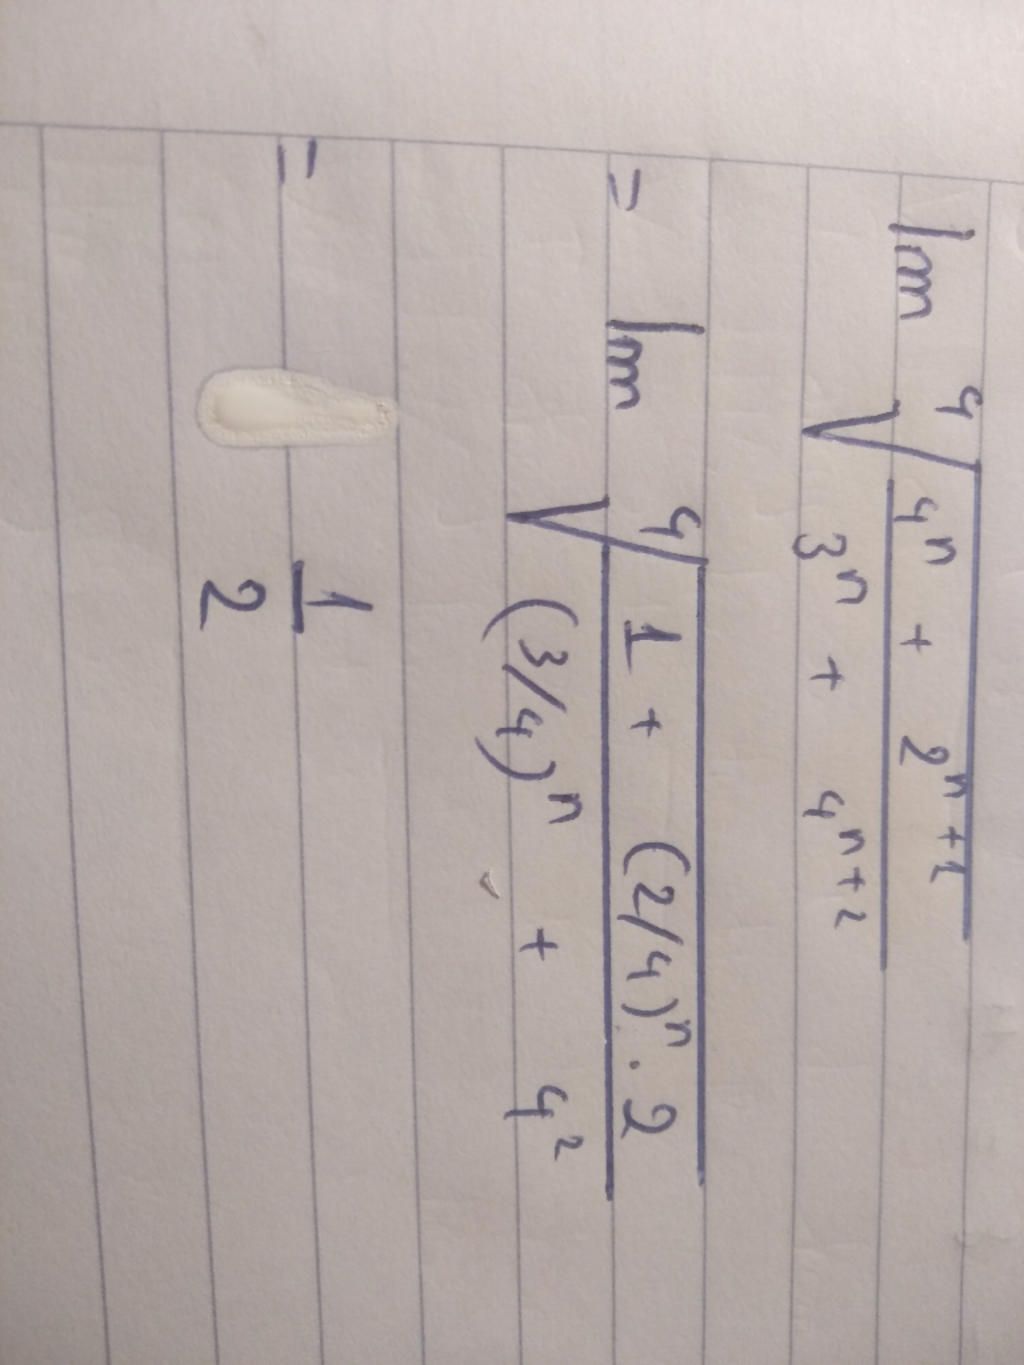 lim ⁴√((4ⁿ + 2ⁿ⁺¹)/(3ⁿ + 4ⁿ⁺²))
= lim ⁴√((1 + (2/4)ⁿ · 2)/((3/4)ⁿ + 4²))
= 1/2